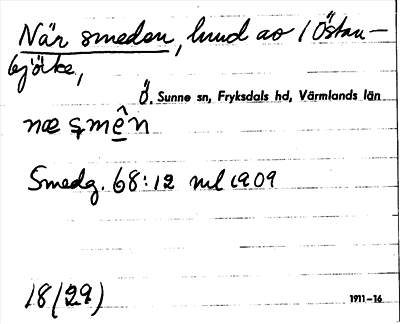 När smeden, lund av 1 Östan-
björke,
Ö. Sunne sn, Fryksdals hd, Värmlands län
næ smên
Smedg. 68:12 ml 1909
18(29)
1911–16